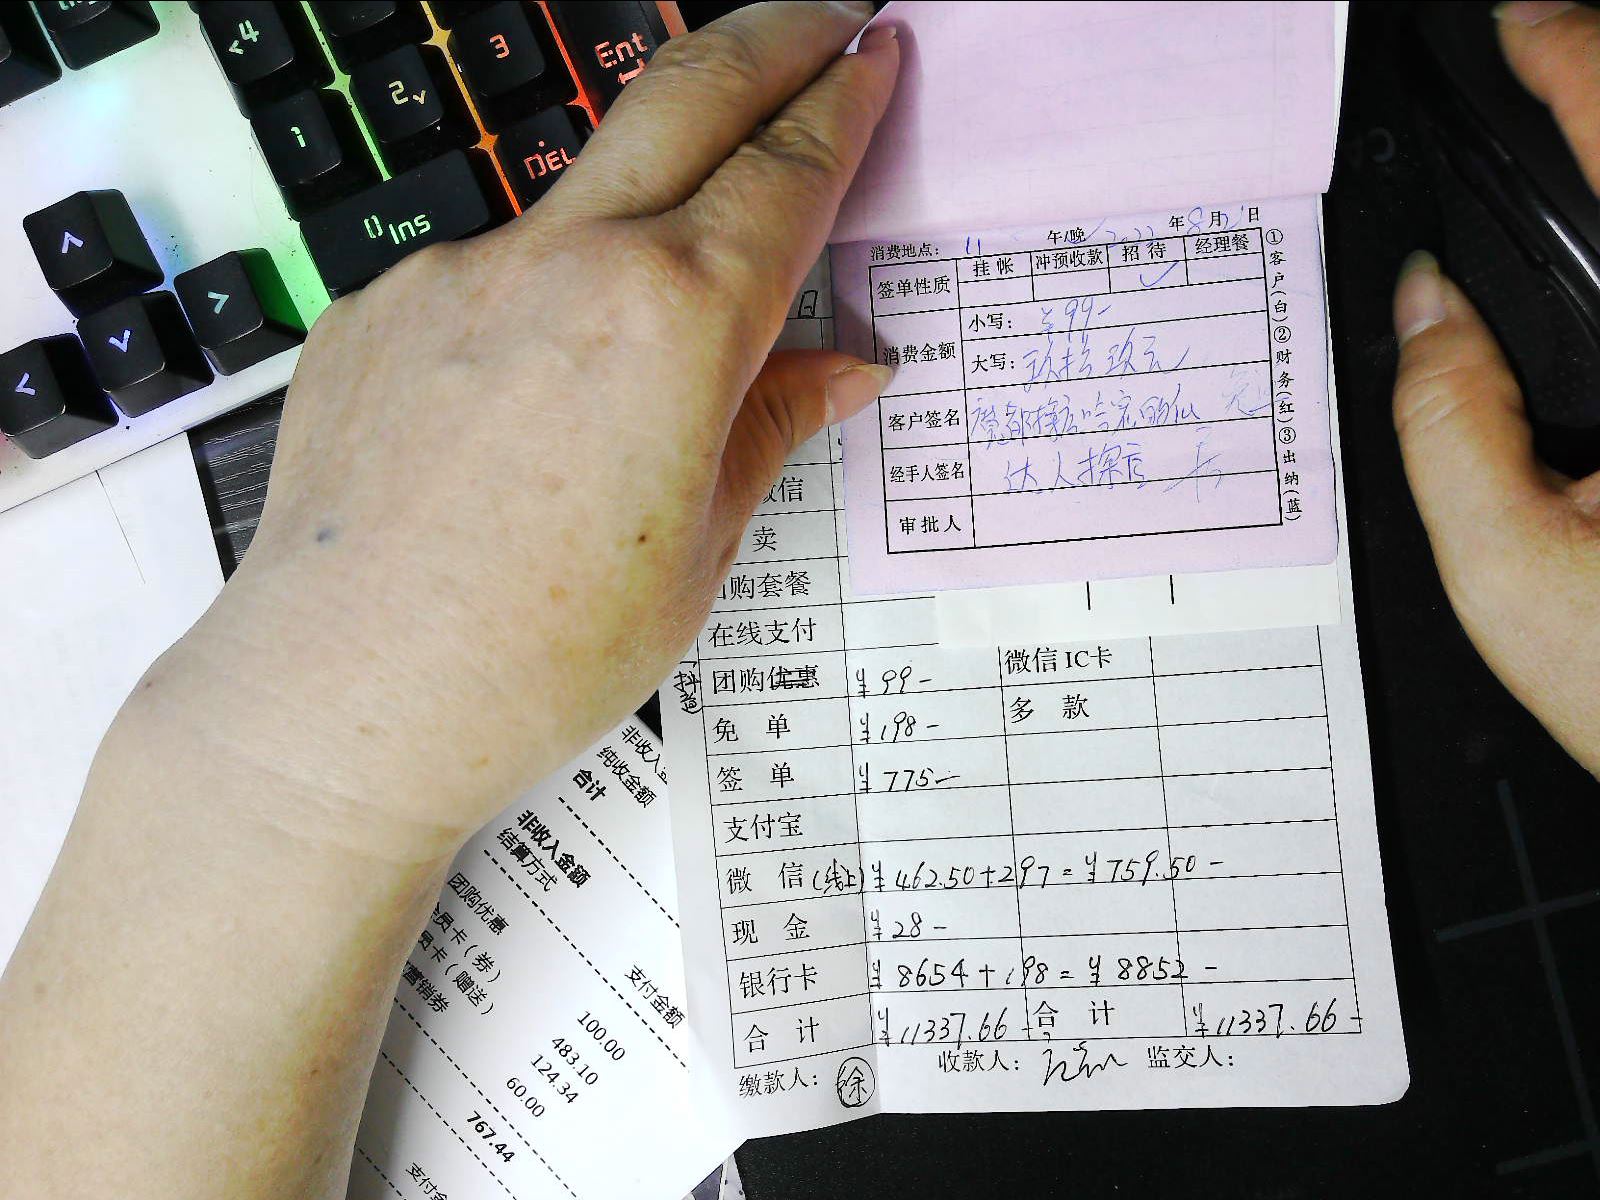 <4
3
Ent
1
2
DEL
0 Ins
消费地点： 11 午/晚 2022 年 8 月 21 日
签单性质 挂帐 冲预收款 招待 经理餐
✓
消费金额 小写： ¥99-
大写： 玖拾玖元
客户签名
经手人签名 达人探店
审批人
①客户(白)②财务(红)③出纳(蓝)
日
微信
卖
团购套餐
在线支付
微信IC卡
团购优惠 ¥99-
多款
免单 ¥198-
签单 ¥775-
支付宝
微信(线上) ¥462.50+297=¥759.50-
现金 ¥28-
银行卡 ¥8654+198=¥8852-
合计 ¥11337.66- 合计 ¥11337.66-
缴款人： 徐 收款人： 监交人：
非收入金
纯收金额
合计
非收入金额
结算方式 支付金额
团购优惠 100.00
会员卡（券） 483.10
员卡（赠送） 124.34
营销券 60.00
767.44
支付金